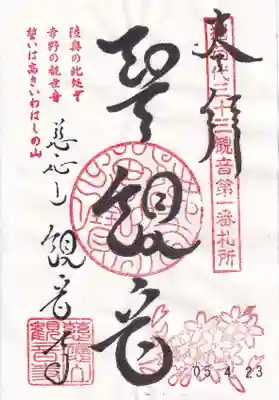 猪苗代三十三観音第一番札所
聖観音
陸奥の此処ぞ
吉野の観世音
誓いは高きいわはしの山
観音寺
05.4.23